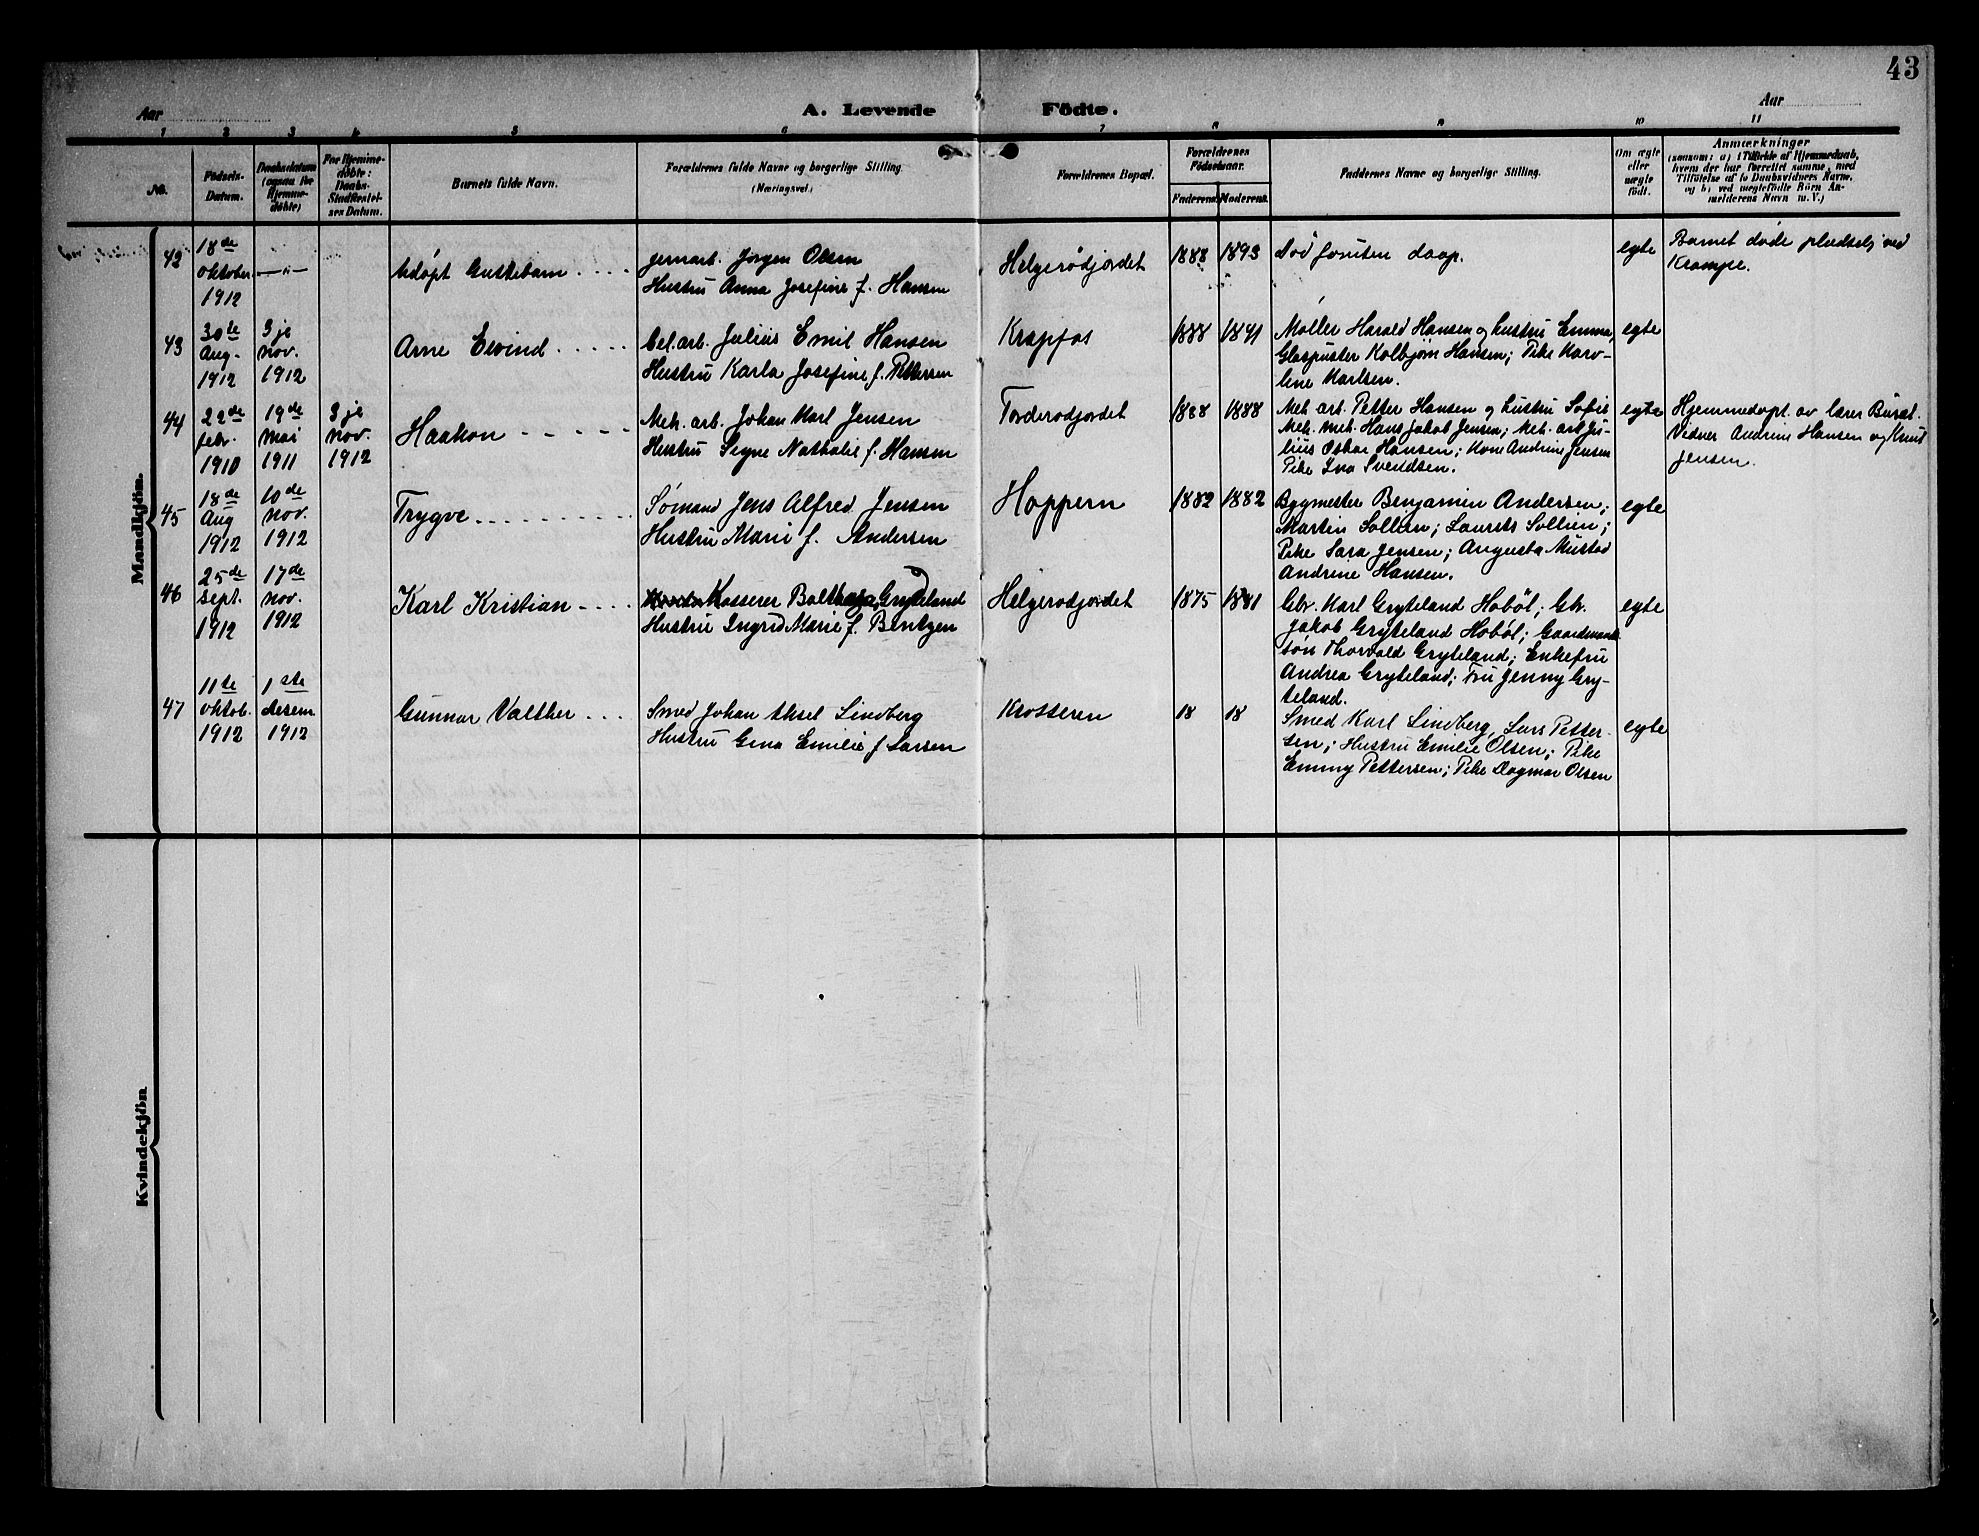 43
Aar
A. Levende Födte.
Aar
1 2 3 4 5 6 7 8 9 10 11
No.
Födsels-
Datum.
Daabsdatum
(ogsaa for
Hjemme-
döbte)
For Hjemme-
döbte:
Daabs-
Stadfæstel-
ses Datum.
Barnets fulde Navn.
Forældrenes fulde Navne og borgerlige Stilling
(Næringsvei)
Forældrenes Bopæl.
Forældrenes
Födselsaar.
Faderens Moderens.
Faddernes Navne og borgerlig Stilling.
Om ægte
eller
uægte
født.
Anmærkninger
(saasom: a) i Tilfælde af Hjemmedaab,
hvem der har forrettet samme, med
Tilföielse af to Daabsvidners Navne,
og b) ved uægtefödte Börn An-
melderens Navn m. V.)
Mandkjön.
42
18de
oktober
1912
—"—
Udøpt Guttebarn
jernarb. Jørgen Olsen
Hustru Anna Josefine f. Hansen
Helgerødjordet
1888
1893
Død foruten daap.
egte
Barnet døde pludselig ved
Krampe.
43
30te
Aug.
1912
3je
nov.
1912
Arne Eivind
Cel.arb. Julius Emil Hansen
Hustru Karla Josefine f. Pettersen
Krapfos
1888
1891
Møller Harald Hansen og hustru Emma,
Glaspuster Kolbjørn Hansen; Pike Karo-
line Karlsen.
egte
44
22de
febr.
1910
19de
mai
1911
3je
nov.
1912
Haakon
Mek. arb. Johan Karl Jensen
Hustru Signe Nathalie f. Hansen
Torderødjordet
1888
1888
Mek. arb. Petter Hansen og hustru Sofie
Mek. mek. Hans Jakob Jensen; Mek. arb. Ju-
lius Oskar Hansen; Kone Andrine Jensen
Pike Ina Svendsen.
egte
Hjemmedøpt. av lærer
Vidner Andrine Hansen og Knut
Jensen.
45
18de
Aug
1912
10de
nov.
1912
Trygve
Sømand Jens Alfred Jensen
Hustru Marie f. Andersen
Hoppern
1882
1882
Bygmester Benjamin Andersen;
Martin Sollien; Laurits Sollien;
Pike Sara Jensen; Augusta Mustad
Andrine Hansen.
egte
46
25de
sept.
1912
17de
nov.
1912
Karl Kristian
Kasserer Balthazar Gryteland
Hustru Ingrid Marie f. Bentzen
Helgerødjordet
1875
1881
Gbr. Karl Gryteland Hobøl; Gbr.
Jakob Gryteland Hobøl; Gaardmand-
søn Thorvald Gryteland; Enkefru
Andrea Gryteland; Fru Jenny Gry-
teland.
egte
47
11te
oktob.
1912
1ste
desem
1912
Gunnar Valther
Smed Johan Aksel Lindberg
Hustru Gina Emilie f. Larsen
Krosseren
18
18
Smed Karl Lindberg, Lars Petter-
sen; Hustru Emilie Olsen; Pike
Emmy Pettersen; Pike Dagmar Olsen
egte
Kvindekjön